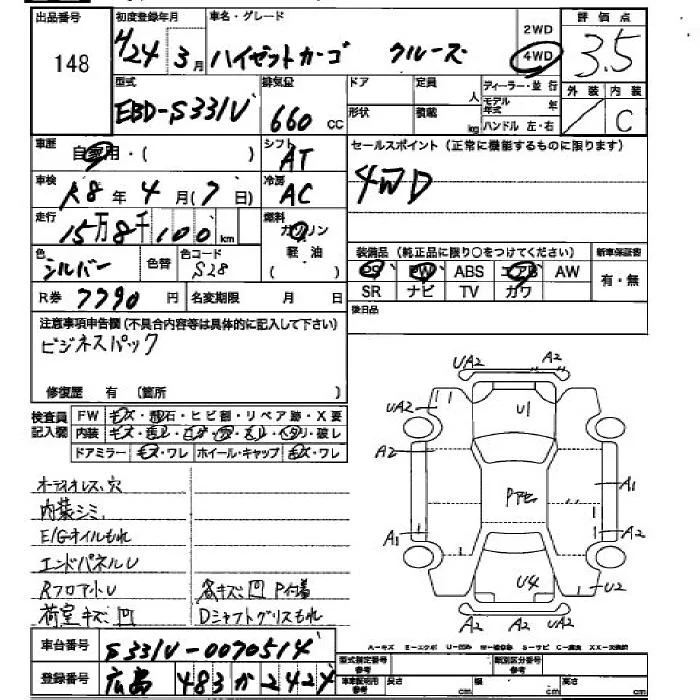 出品番号 初度登録年月 車名・グレード 2WD 評価点
148 H24 3月 ハイゼットカーゴ クルーズ 4WD 3.5
型式 排気量 ドア 定員 人 ディーラー・並行 外装 内装
EBD-S331V 660 CC 形状 積載 kg モデル年式 年 C
ハンドル 左・右
車歴 自家用・( ) シフト AT セールスポイント (正常に機能するものに限ります)
車検 R8年 4月(7日) 冷房 AC 4WD
走行 15万8千100km 燃料 ガソリン
軽油
( )
色 シルバー 色替 色コード S28 装備品 (純正品に限り○をつけてください) 新車保証書
PS PW ABS エアB AW 有・無
R券 7790円 名変期限 月 日 SR ナビ TV カワ
注意事項申告欄(不具合内容等は具体的に記入して下さい) 後日品
ビジネスパック
修復歴 有 (箇所 )
検査員記入欄 FW キズ・飛石・ヒビ割・リペア跡・X要
内装 キズ・破れ
ドアミラー キズ・ワレ ホイール・キャップ キズ・ワレ
UA2 A2
UA2 U1
A2
A1
A1 A2
U4 U2
A2 A2 A2
オーディオレス、穴
内装シミ
E/Gオイルもれ
エンドパネルU
RフロアートU 各キズ凹 P付着
荷室キズ凹 Dシャフトグリスもれ
車台番号 S331V-0070514
登録番号 広島 483 か 2424
A－キズ E－エクボ U－凹み W－補修跡 S－サビ C－腐食 XX－交換済
型式指定番号 参考 類別区分番号 参考
車輌証明用 参考 長さ cm 幅 cm 高さ cm